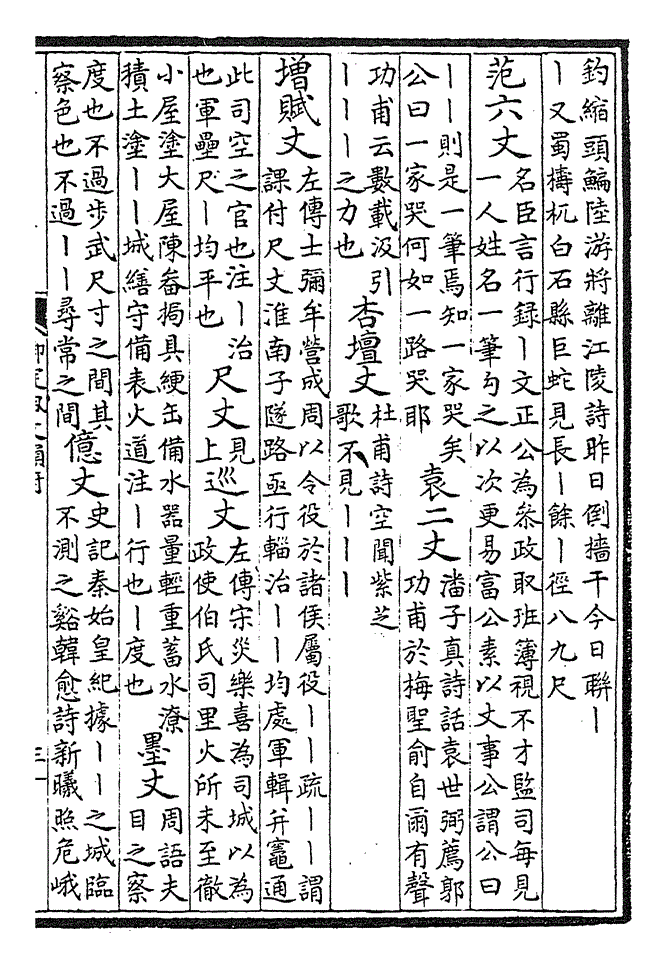 釣縮頭鯿陸游將離江陵詩昨日倒檣干今日聯丨
丨又蜀檮杌白石縣巨蛇見長丨餘丨徑八九尺
范六丈
名臣言行録丨文正公為參政取班簿視不才監司每見
一人姓名一筆勾之以次更易富公素以丈事公謂公曰
丨丨則是一筆焉知一家哭矣
公曰一家哭何如一路哭耶
袁二丈
潘子真詩話袁世弼薦郭
功甫於梅聖俞自爾有聲
功甫云數載汲引
丨丨丨之力也
杏壇丈
杜甫詩空聞紫芝
歌不見丨丨丨
增賦丈
左傳士彌牟營成周以令役於諸侯屬役丨丨疏丨丨謂
課付尺丈淮南子隧路亟行輜治丨丨均處軍輯井竈通
此司空之官也注丨治
也軍壘尺丨均平也
尺丈
見
上
巡丈
左傳宋災樂喜為司城以為
政使伯氏司里火所未至徹
小屋塗大屋陳畚挶具綆缶備水器量輕重蓄水潦
積土塗丨丨城繕守備表火道注丨行也丨度也
墨丈
周語夫
目之察
度也不過步武尺寸之間其
察色也不過丨丨尋常之間
億丈
史記秦始皇紀據丨丨之城臨
不測之谿韓愈詩新曦照危峨